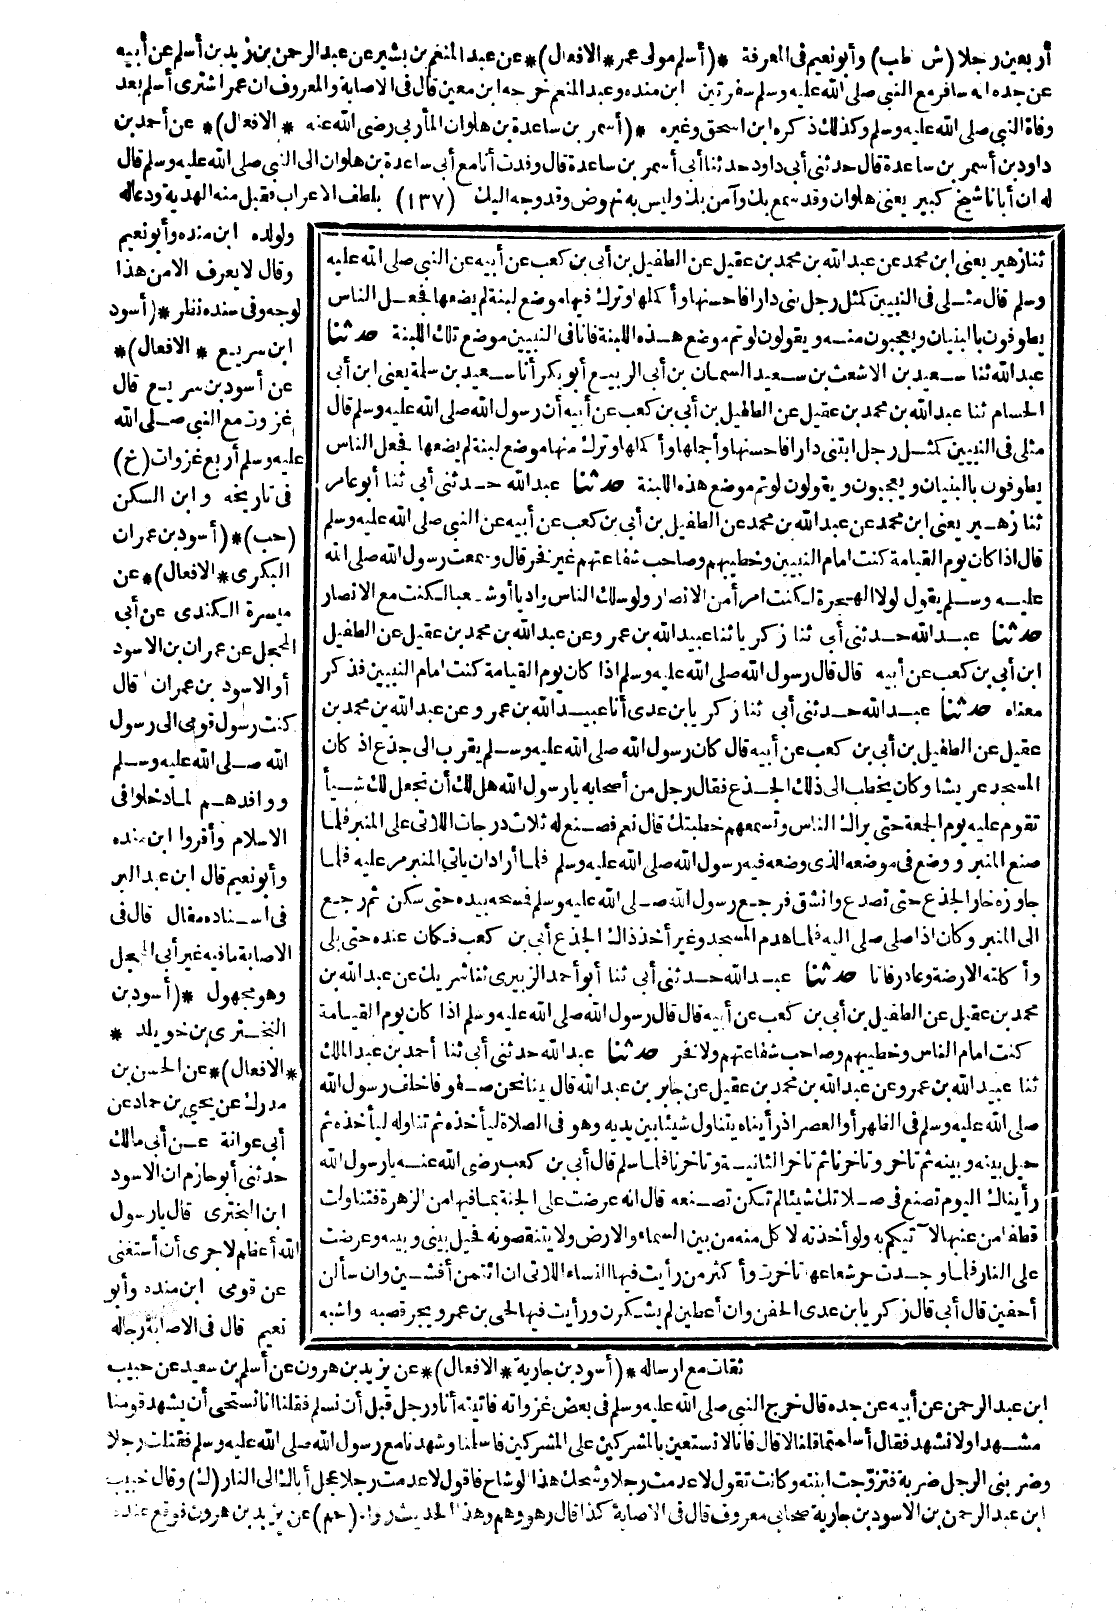 أربعين رجلا (ش طب) وأبو نعيم فى المعرفة * (أسلم مولى عمر * الافعال) * عن عبد المنعم بن بشير عن عبد الرحمن بن زيد بن أسلم عن أبيه
عن جده انه سافر مع النبي صلى الله عليه وسلم سفرتين ابن منده وعبد المنعم خرجه ابن معين قال فى الاصابة والمعروف ان عمر اشترى أسلم بعد
وفاة النبي صلى الله عليه وسلم وكذلك ذكره ابن اسحق وغيره * (أسمر بن ساعدة بن هلوان المأربى رضى الله عنه * الافعال) * عن أحمد بن
داود بن أسمر بن ساعدة قال حدثنى أبى داود حدثنا أبى أسمر بن ساعدة قال وفدت أنا مع أبى ساعدة بن هلوان الى النبي صلى الله عليه وسلم قال
له ان أبانا شيخ كبير يعنى هلوان وقد سمع بك وآمن بك وليس به نهوض وقد وجه اليك (١٣٧) بلطف الاعراب فقبل منه الهدية ودعا له
ولولده ابن منده وأبو نعيم
وقال لا يعرف الا من هذا
لوجه وفى سنده نظر * (أسود
ابن سريع * الافعال) *
عن أسود بن سريع قال
غزوت مع النبي صلى الله
عليه وسلم أربع غزوات (خ)
فى تاريخه وابن السكن
(حب) * (أسود بن عمران
البكرى * الافعال) * عن
ميسرة الكندى عن أبى
المحجل عن عمران بن الاسود
أو الاسود بن عمران قال
كنت رسول قومى الى رسول
الله صلى الله عليه وسلم
ووافدهم لما دخلوا فى
الاسلام وأقروا ابن منده
وأبو نعيم قال ابن عبد البر
فى اسناده مقال قال فى
الاصابة ما فيه غير أبى المحجل
وهو مجهول * (أسود بن
البخترى بن خويلد *
* الافعال) * عن الحسن بن
مدرك عن يحيى بن حماد عن
أبى عوانة عن أبى مالك
حدثنى أبو حازم ان الاسود
ابن البخترى قال يا رسول
الله أعظم لاجرى أن أستغنى
عن قومى ابن منده وأبو
نعيم قال فى الاصابة رجاله
ثنا زهير يعنى ابن محمد عن عبد الله بن محمد بن عقيل عن الطفيل بن أبى بن كعب عن أبيه عن النبي صلى الله عليه
وسلم قال مثلى فى النبيين كمثل رجل بنى دارا فاحسنها وأكملها وترك فيها موضع لبنة لم يضعها فجعل الناس
يطوفون بالبنيان ويعجبون منه ويقولون لو تم موضع هذه اللبنة فانا فى النبيين موضع تلك اللبنة حدثنا
عبد الله ثنا سعيد بن الاشعث بن سعيد السمان بن أبى الربيع أبو بكر أنا سعيد بن سلمة يعنى ابن أبى
الحسام ثنا عبد الله بن محمد بن عقيل عن الطفيل بن أبى بن كعب عن أبيه أن رسول الله صلى الله عليه وسلم قال
مثلى فى النبيين كمثل رجل ابتنى دارا فاحسنها وأجملها وأكملها وترك منها موضع لبنة لم يضعها فجعل الناس
يطوفون بالبنيان ويعجبون ويقولون لو تم موضع هذه اللبنة حدثنا عبد الله حدثنى أبى ثنا أبو عامر
ثنا زهير يعنى ابن محمد عن عبد الله بن محمد عن الطفيل بن أبى بن كعب عن أبيه عن النبي صلى الله عليه وسلم
قال اذا كان يوم القيامة كنت امام النبيين وخطيبهم وصاحب شفاعتهم غير فخر قال وسمعت رسول الله صلى الله
عليه وسلم يقول لولا الهجرة لكنت امرأ من الانصار ولو سلك الناس واديا أو شعبا لكنت مع الانصار
حدثنا عبد الله حدثنى أبى ثنا زكريا ثنا عبيد الله بن عمرو عن عبد الله بن محمد بن عقيل عن الطفيل
ابن أبى بن كعب عن أبيه قال قال رسول الله صلى الله عليه وسلم اذا كان يوم القيامة كنت امام النبيين فذكر
معناه حدثنا عبد الله حدثنى أبى ثنا زكريا بن عدى أنا عبيد الله بن عمرو عن عبد الله بن محمد بن
عقيل عن الطفيل بن أبى بن كعب عن أبيه قال كان رسول الله صلى الله عليه وسلم يقرب الى جذع اذ كان
المسجد عريشا وكان يخطب الى ذلك الجذع فقال رجل من أصحابه يا رسول الله هل لك أن نجعل لك شيأ
تقوم عليه يوم الجمعة حتى يراك الناس وتسمعهم خطبتك قال نعم فصنع له ثلاث درجات اللاتى على المنبر فلما
صنع المنبر ووضع فى موضعه الذى وضعه فيه رسول الله صلى الله عليه وسلم فلما أراد ان ياتى المنبر مر عليه فلما
جاوزه خار الجذع حتى تصدع وانشق فرجع رسول الله صلى الله عليه وسلم فمسحه بيده حتى سكن ثم رجع
الى المنبر وكان اذا صلى صلى اليه فلما هدم المسجد وغير أخذ ذاك الجذع أبى بن كعب فكان عنده حتى بلى
وأكلته الارضة وعاد رفاتا حدثنا عبد الله حدثنى أبى ثنا أبو أحمد الزبيرى ثنا شريك عن عبد الله بن
محمد بن عقيل عن الطفيل بن أبى بن كعب عن أبيه قال قال رسول الله صلى الله عليه وسلم اذا كان يوم القيامة
كنت امام الناس وخطيبهم وصاحب شفاعتهم ولا فخر حدثنا عبد الله حدثنى أبى ثنا أحمد بن عبد الملك
ثنا عبيد الله بن عمرو عن عبد الله بن محمد بن عقيل عن جابر بن عبد الله قال بينا نحن صفوفا خلف رسول الله
صلى الله عليه وسلم فى الظهر أو العصر اذ رأيناه يتناول شيئا بين يديه وهو فى الصلاة ليأخذه ثم تناوله ليأخذه ثم
حيل بينه وبينه ثم تاخر وتاخرنا ثم تاخر الثانية وتاخرنا فلما سلم قال أبى بن كعب رضى الله عنه يا رسول الله
رأيناك اليوم تصنع فى صلاتك شيئا لم تكن تصنعه قال انه عرضت على الجنة بما فيها من الزهرة فتناولت
قطفا من عنبها لآتيكم به ولو أخذته لاكل منه من بين السماء والارض ولا ينتقصونه فحيل بينى وبينه وعرضت
على النار فلما وجدت حر شعاعها تاخرت وأكثر من رأيت فيها النساء اللاتى ان ائتمن أفشين وان سألن
أحفين قال أبى قال زكريا بن عدى الحفن وان أعطين لم يشكرن ورأيت فيها لحى بن عمرو يجر قصبه واشبه
ثقات مع ارساله * (أسود بن جارية * الافعال) * عن يزيد بن هرون عن أسلم بن سعيد عن حبيب
ابن عبد الرحمن عن أبيه عن جده قال خرج النبي صلى الله عليه وسلم فى بعض غزواته فاتيته أنا ورجل قبل أن نسلم فقلنا انا نستحى أن يشهد قومنا
مشهدا ولا نشهد فقال أسلمتما قلنا لا قال فانا لا نستعين بالمشركين على المشركين فاسلمنا وشهدنا مع رسول الله صلى الله عليه وسلم فقتلت رجلا
وضربنى الرجل ضربة فتزوجت ابنته وكانت تقول لا عدمت رجلا وشحك هذا الوشاح فاقول لا عدمت رجلا عجل أباك الى النار (ك) وقال خبيب
ابن عبد الرحمن بن الاسود بن جارية صحابى معروف قال فى الاصابة كذا قال وهو وهم وهذا الحديث رواه (حم) عن يزيد بن هرون فوقع عنده